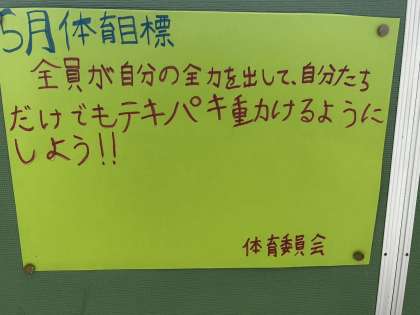 5月体育目標
全員が自分の全力を出して、自分たち
だけでもテキパキ動けるように
しよう!!
体育委員会